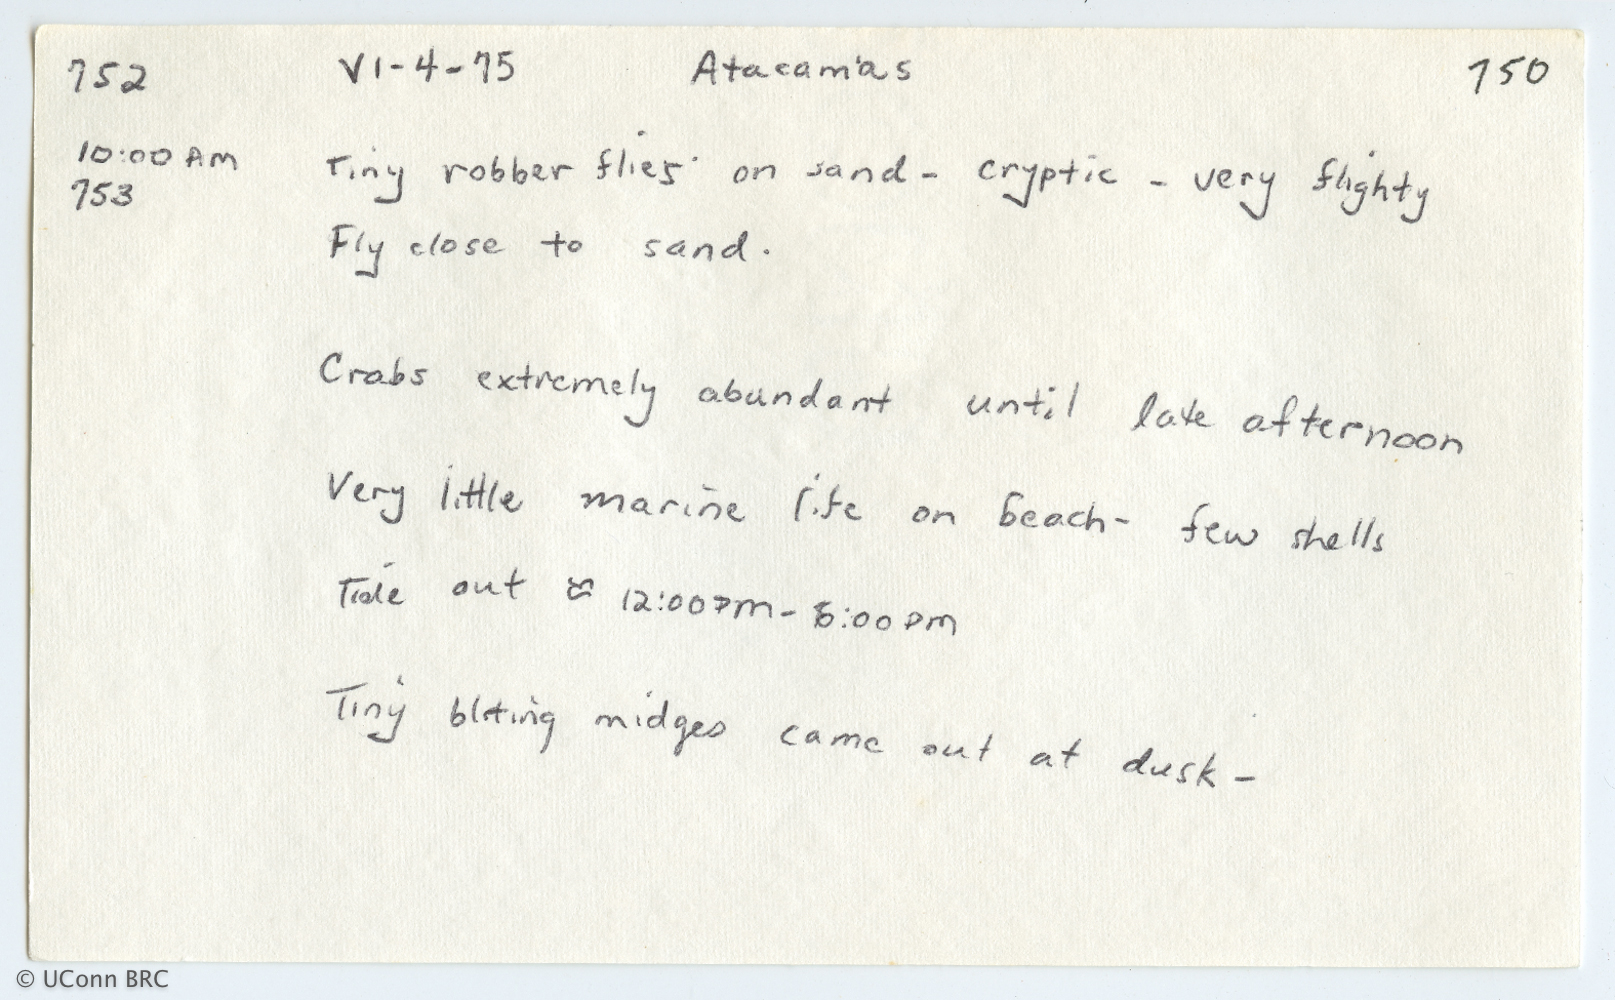 752 VI-4-75 Atacamas 750
10:00 AM Tiny robber flies on sand - cryptic - very flighty
753
Fly close to sand.
Crabs extremely abundant until late afternoon
Very little marine life on beach - few shells
Tide out ≈ 12:00 PM - :00 PM
Tiny biting midges came out at dusk -
© UConn BRC